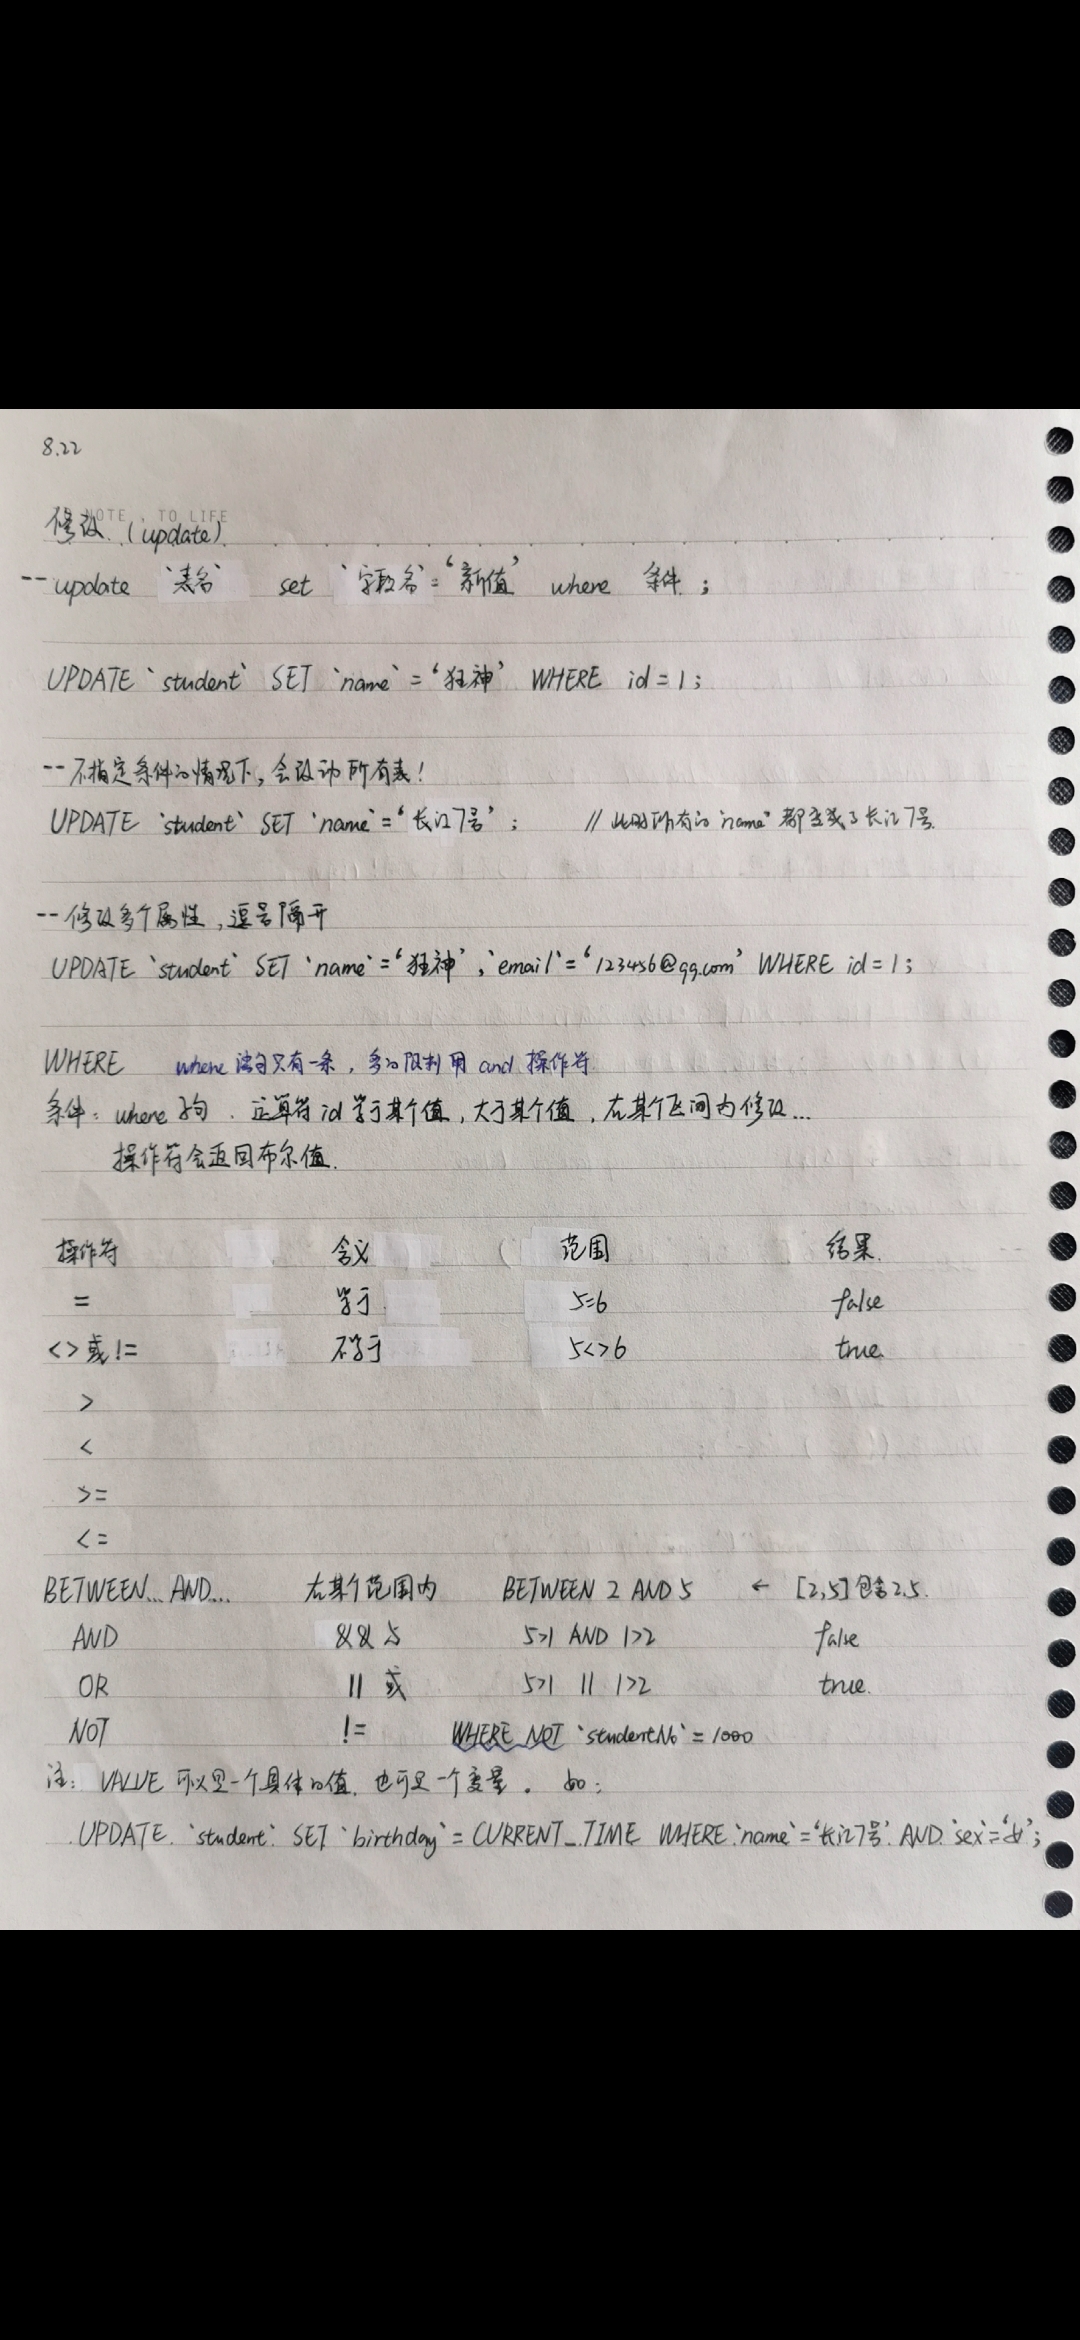 8.22
NOTE TO LIFE
修改 (update)
-- update `表名` set `字段名`=‘新值’ where 条件;
UPDATE `student` SET `name`=‘狂神’ WHERE id=1;
--不指定条件的情况下,会改动所有表!
UPDATE `student` SET `name`=‘长江7号’; // 此时所有的`name`都变成了长江7号.
--修改多个属性,逗号隔开
UPDATE `student` SET `name`=‘狂神’,`email`=‘123456@qq.com’ WHERE id=1;
WHERE where 语句只有一条, 多的限制用 and 操作符.
条件: where 子句. 运算符 id 等于某个值,大于某个值,在某个区间内修改...
操作符会返回布尔值.
操作符 含义 范围 结果.
= 等于 5=6 false
<>或!= 不等于 5<>6 true
>
<
>=
<=
BETWEEN... AND.... 在某个范围内 BETWEEN 2 AND 5 ← [2,5]包含2.5.
AND && 与 5>1 AND 1>2 false
OR || 或 5>1 || 1>2 true.
NOT != WHERE NOT `studentNo`=1000
注: VALUE 可以是一个具体的值, 也可是一个变量. 如:
UPDATE `student` SET `birthday`=CURRENT_TIME WHERE `name`=‘长江7号’ AND `sex`=‘女’;